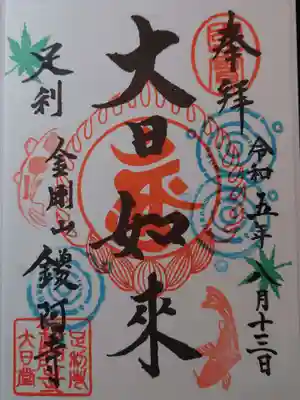 奉拝
令和五年八月十三日
大日如来
足利
金剛山
鑁阿寺
大日堂